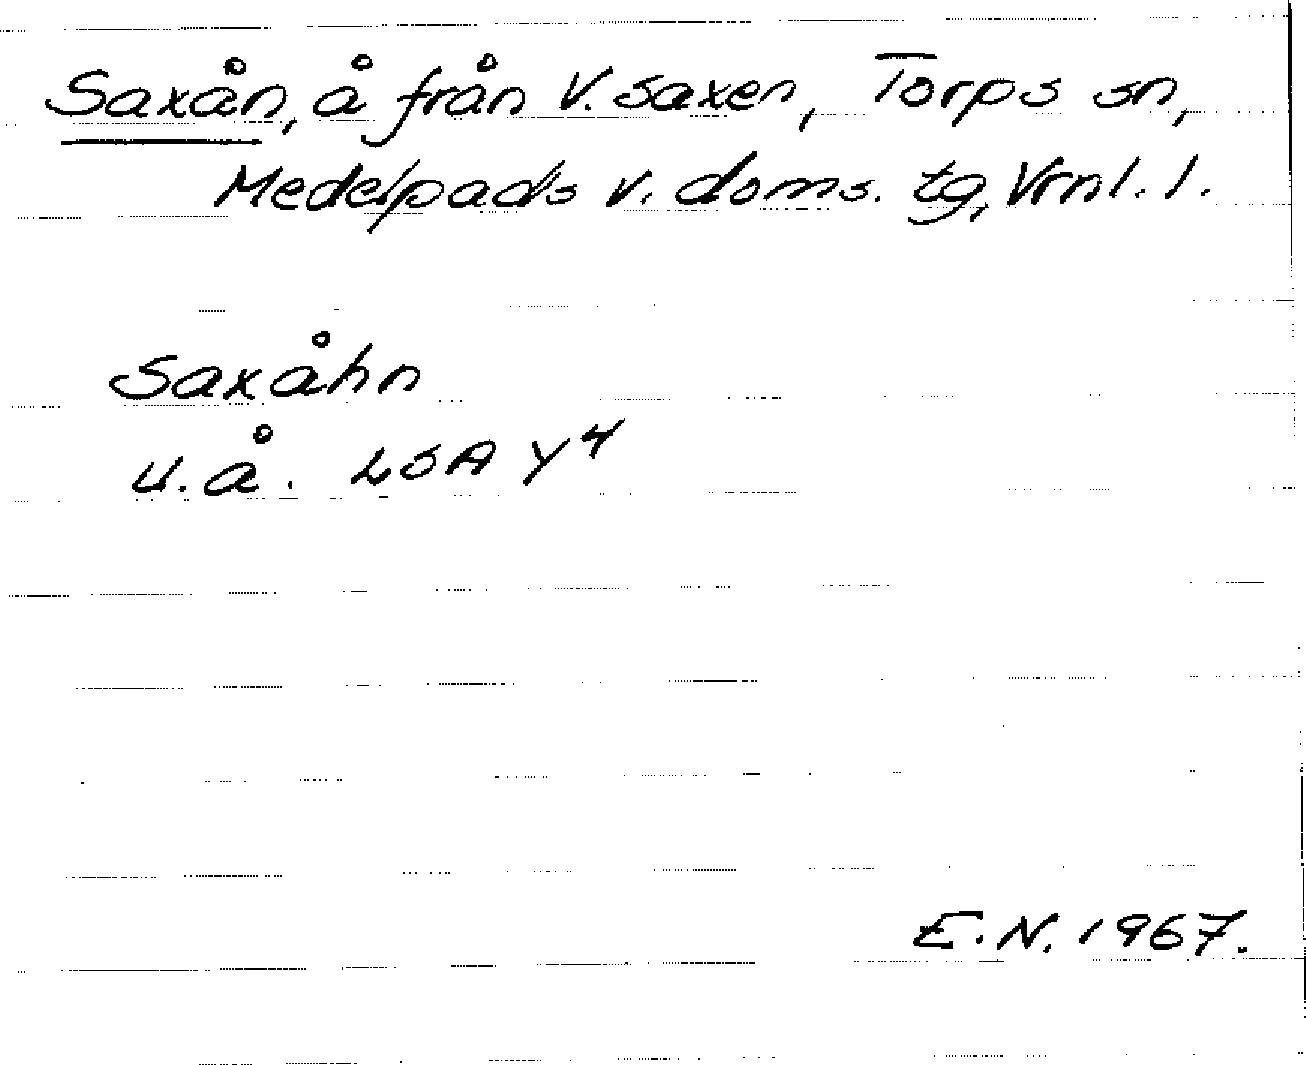 Saxån, å från V. Saxen, Torps sn,
Medelpads v. doms. tg, Vrnl. l.
Saxåhn
u.å. LSA Y4
E.N. 1967.